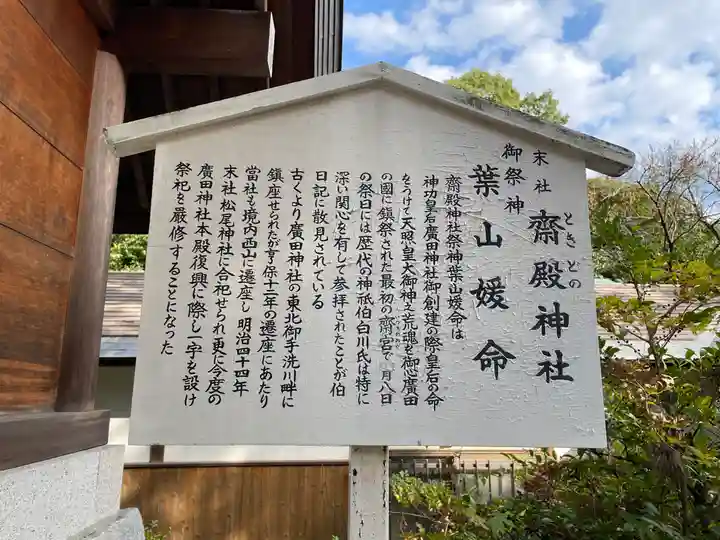 末社 齋殿神社
ときどの
御祭神 葉山媛命
齋殿神社祭神葉山媛命は
神功皇后廣田神社御創建の際皇后の命
をうけて天照皇大御神之荒魂を御心廣田
の國に鎮祭された最初の齋宮で一月八日
の祭日には歴代の神祇伯白川氏は特に
深い関心を有して参拝されたことが伯
日記に散見されている
古くより廣田神社の東北御手洗川畔に
鎮座せられたが享保十二年の遷座にあたり
當社も境内西山に遷座し明治四十四年
末社松尾神社に合祀せられ更に今度の
廣田神社本殿復興に際し一宇を設け
祭祀を嚴修することになった